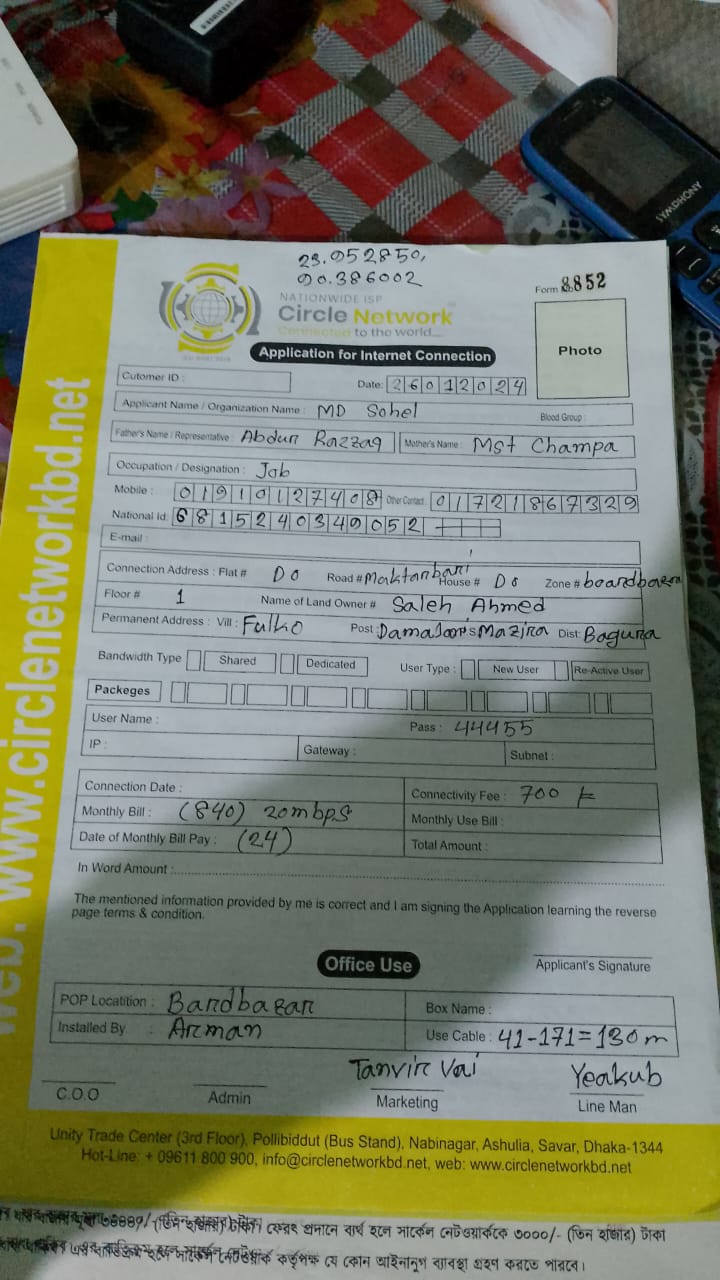 23.952850,
90.386002
Form No 8852
NATIONWIDE ISP
Circle Network
Connected to the world....
Application for Internet Connection
Photo
Cutomer ID :
Date: 26012024
Applicant Name / Organization Name : MD Sohel Blood Group :
Father's Name / Representative : Abdur Razzag Mother's Name : Mst Champa
Occupation / Designation : Job
Mobile : 01910127408 Other Contact : 01721867329
National Id: 6815240349052
E-mail :
Connection Address : Flat # Do Road # Maktarbari House # Do Zone # boardbazar
Floor # 1 Name of Land Owner # Saleh Ahmed
Permanent Address : Vill : Fulko Post : Mazira Dist: Bagura
Bandwidth Type Shared Dedicated User Type : New User Re-Active User
Packeges
User Name : Pass : 44455
IP : Gateway : Subnet :
Connection Date : Connectivity Fee : 700
Monthly Bill : (840) 20mbps Monthly Use Bill :
Date of Monthly Bill Pay : (24) Total Amount :
In Word Amount :
The mentioned information provided by me is correct and I am signing the Application learning the reverse
page terms & condition.
Applicant's Signature
Office Use
POP Locatition : Bardbazar Box Name :
Installed By : Arman Use Cable : 41-171=130m
Tanvir Vai Yeakub
C.O.O Admin Marketing Line Man
Unity Trade Center (3rd Floor), Pollibiddut (Bus Stand), Nabinagar, Ashulia, Savar, Dhaka-1344
Hot-Line: + 09611 800 900, info@circlenetworkbd.net, web: www.circlenetworkbd.net
web: www.circlenetworkbd.net
SYMPHONY
(তিন হাজার) টাকা। ফেরৎ প্রদানে ব্যর্থ হলে সার্কেল নেটওয়ার্ককে ৩০০০/- (তিন হাজার) টাকা
সার্কেল নেটওয়ার্ক কর্তৃপক্ষ যে কোন আইনানুগ ব্যবস্থা গ্রহণ করতে পারবে।